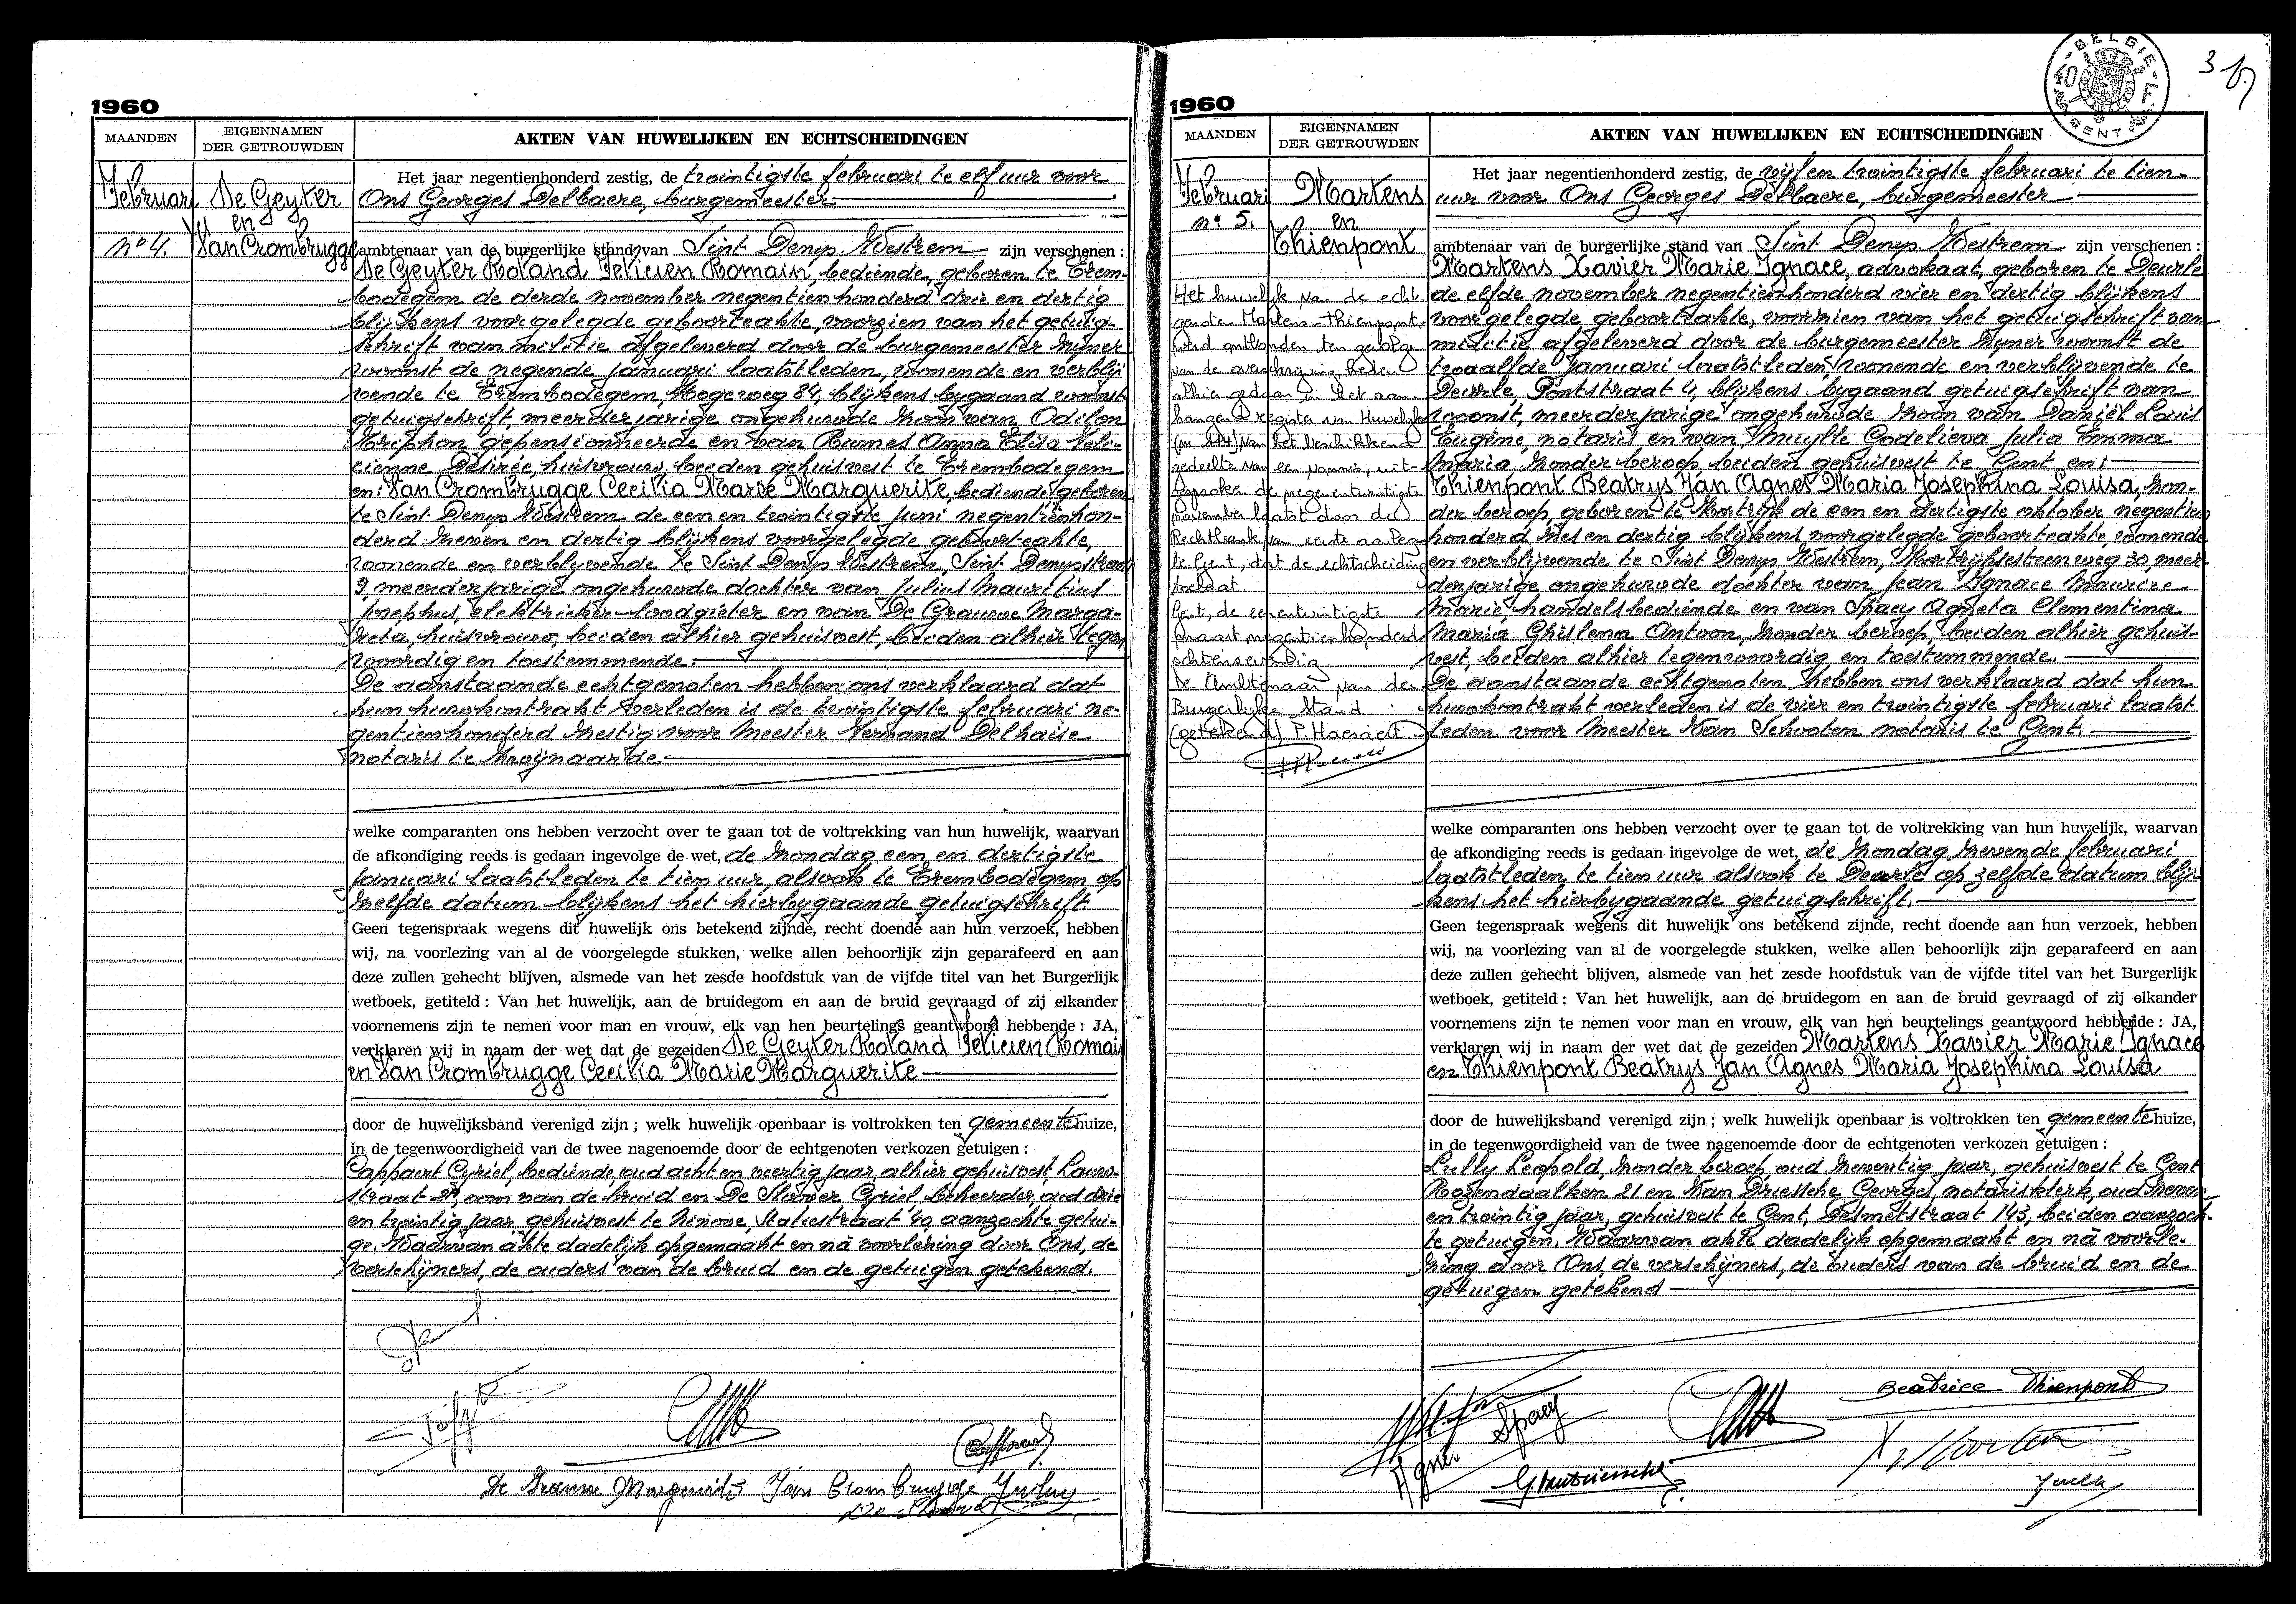 1960
MAANDEN
EIGENNAMEN
DER GETROUWDEN
AKTEN VAN HUWELIJKEN EN ECHTSCHEIDINGEN
Februari
De Geyter
en
Van Crombrugge
nº 4.
Het jaar negentienhonderd zestig, de twintigste februari te elf uur voor
Ons Georges Delbaere, burgemeester
ambtenaar van de burgerlijke stand van Sint Denys Westrem zijn verschenen :
De Geyter Roland Felicien Romain, bediende, geboren te Erem-
bodegem de derde november negentienhonderd drie en dertig
blijkens voorgelegde geboorteakte, voorzien van het getuig-
schrift van militie afgeleverd door de burgemeester zijner
woonst de negende januari laatstleden, wonende en verblij-
vende te Erembodegem, Hogeweg 84, blijkens bygaand woonst-
getuigschrift, meerderjarige ongehuwde zoon van Odilon
Triphon gepensionneerde en van Rumes Anna Elisa Feli-
cienne Désirée, huisvrouw, beiden gehuisvest te Erembodegem
en: Van Crombrugge Cecilia Marie Marguerite, bediende, geboren
te Sint Denys Westrem de een en twintigste juni negentienhon-
derd zeven en dertig blijkens voorgelegde geboorteakte,
wonende en verblyvende te Sint Denys Westrem, Sint Denysstraat
9, meerderjarige ongehuwde dochter van Julius Mauritius
Josephus, elektrieker-loodgieter en van De Grauwe Marga-
reta, huisvrouw, beiden alhier gehuisvest, beiden alhier tegen
woordig en toestemmende.
De aanstaande echtgenoten hebben ons verklaard dat
hun huwkontrakt verleden is de twintigste februari ne-
gentienhonderd zestig voor Meester Fernand Delhaise
notaris te Zwijnaarde
welke comparanten ons hebben verzocht over te gaan tot de voltrekking van hun huwelijk, waarvan
de afkondiging reeds is gedaan ingevolge de wet, de zondag een en dertigste
januari laatstleden te tien uur, alsook te Erembodegem op
zelfde datum blijkens het hierbygaande getuigschrift.
Geen tegenspraak wegens dit huwelijk ons betekend zijnde, recht doende aan hun verzoek, hebben
wij, na voorlezing van al de voorgelegde stukken, welke allen behoorlijk zijn geparafeerd en aan
deze zullen gehecht blijven, alsmede van het zesde hoofdstuk van de vijfde titel van het Burgerlijk
wetboek, getiteld : Van het huwelijk, aan de bruidegom en aan de bruid gevraagd of zij elkander
voornemens zijn te nemen voor man en vrouw, elk van hen beurtelings geantwoord hebbende : JA,
verklaren wij in naam der wet dat de gezeiden De Geyter Roland Felicien Romain
en Van Crombrugge Cecilia Marie Marguerite
door de huwelijksband verenigd zijn ; welk huwelijk openbaar is voltrokken ten gemeentehuize,
in de tegenwoordigheid van de twee nagenoemde door de echtgenoten verkozen getuigen :
Cappaert Cyriel, bediende, oud acht en veertig jaar, alhier gehuisvest,
straat oom van de bruid en De Stover Cyriel, beheerder, oud drie
en twintig jaar, gehuisvest te Ninove, Statiestraat 40, aanzochte getui-
ge. Waarvan akte dadelijk opgemaakt en nà voorlezing door Ons, de
verschijners, de ouders van de bruid en de getuigen getekend.
De Grauwe Margerita Van Crombrugge
1960
BELGIE
GENT
MAANDEN
EIGENNAMEN
DER GETROUWDEN
AKTEN VAN HUWELIJKEN EN ECHTSCHEIDINGEN
Februari
nº 5.
Martens
en
Thienpont
Het huwelijk van de echt
genoten Martens-Thienpont
werd ontbonden ten gevolge
van de overschrijving heden
alhier gedaan in het aan-
hangend register van Huwelijken
van het beschikkend
gedeelte van een vonnis, uit-
gesproken de negenentwintigste
november laatst door de
Rechtbank van eerste aanleg
te Gent, dat de echtscheiding
toelaat.
Gent, de eenentwintigste
maart negentienhonderd
achtenseventig
De Ambtenaar van de
Burgerlijke Stand
(getekend) P. Haesaert
Het jaar negentienhonderd zestig, de vijf en twintigste februari te tien
uur voor Ons Georges Delbaere, burgemeester
ambtenaar van de burgerlijke stand van Sint Denys Westrem zijn verschenen :
Martens Xavier Marie Ignace, advokaat, geboren te Deurle
de elfde november negentienhonderd vier en dertig blijkens
voorgelegde geboorteakte, voorzien van het getuigschrift van
militie afgeleverd door de burgemeester zijner woonst de
twaalfde januari laatstleden wonende en verblijvende te
Deurle, Pontstraat 4, blijkens bygaand getuigschrift van
woonst, meerderjarige ongehuwde zoon van Daniël Louis
Eugène, notaris en van Smuylle Godelieva Julia Emma
Maria zonder beroep, beiden gehuisvest te Gent en:
Thienpont Beatrys Jan Agnes Maria Josephina Louisa, zon-
der beroep, geboren te Kortrijk de een en dertigste oktober negentien
honderd zes en dertig blijkens voorgelegde geboorteakte, wonende
en verblijvende te Sint Denys Westrem, Kortrijksteenweg 30, meer-
derjarige ongehuwde dochter van Jean Ignace Maurice
Marie, handelsbediende en van Spaey Agneta Clementina
Maria Ghislena Antoon, zonder beroep, beiden alhier gehuis-
vest, beiden alhier tegenwoordig en toestemmende.
De aanstaande echtgenoten hebben ons verklaard dat hun
huwkontrakt verleden is de vier en twintigste februari laatst
leden voor Meester Van Schooten notaris te Gent.
welke comparanten ons hebben verzocht over te gaan tot de voltrekking van hun huwelijk, waarvan
de afkondiging reeds is gedaan ingevolge de wet, de zondag zevende februari
laatstleden te tien uur alsook te Deurle op zelfde datum blij-
kens het hierbygaande getuigschrift.
Geen tegenspraak wegens dit huwelijk ons betekend zijnde, recht doende aan hun verzoek, hebben
wij, na voorlezing van al de voorgelegde stukken, welke allen behoorlijk zijn geparafeerd en aan
deze zullen gehecht blijven, alsmede van het zesde hoofdstuk van de vijfde titel van het Burgerlijk
wetboek, getiteld : Van het huwelijk, aan de bruidegom en aan de bruid gevraagd of zij elkander
voornemens zijn te nemen voor man en vrouw, elk van hen beurtelings geantwoord hebbende : JA,
verklaren wij in naam der wet dat de gezeiden Martens Xavier Marie Ignace
en Thienpont Beatrys Jan Agnes Maria Josephina Louisa
door de huwelijksband verenigd zijn ; welk huwelijk openbaar is voltrokken ten gemeentehuize,
in de tegenwoordigheid van de twee nagenoemde door de echtgenoten verkozen getuigen :
Lully Leopold, zonder beroep, oud zeventig jaar, gehuisvest te Gent
Rozendaalken 21 en Van Driessche Georges, notarisklerk, oud zeven
en twintig jaar, gehuisvest te Gent, Desmetstraat 143, beiden aanzoch-
te getuigen. Waarvan akte dadelijk opgemaakt en nà voorle-
zing door Ons, de verschijners, de ouders van de bruid en de
getuigen getekend
Beatrice Thienpont
Agnes Spaey
X. Martens
G. Van Driessche